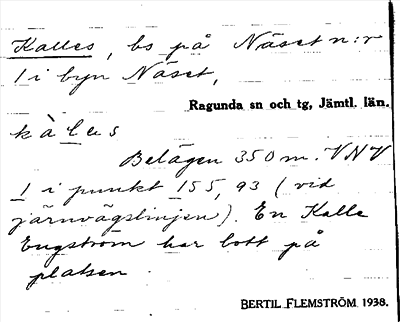 Kalles, bs på Näset n:r
1 i byn Näset,
Ragunda sn och tg, Jämtl. län.
kàles
Belägen 350 m. VNV
1 i punkt 155,93 (vid
järnvägslinjen). En Kalle
Engström har bott på
platsen.
BERTIL FLEMSTRÖM 1938.